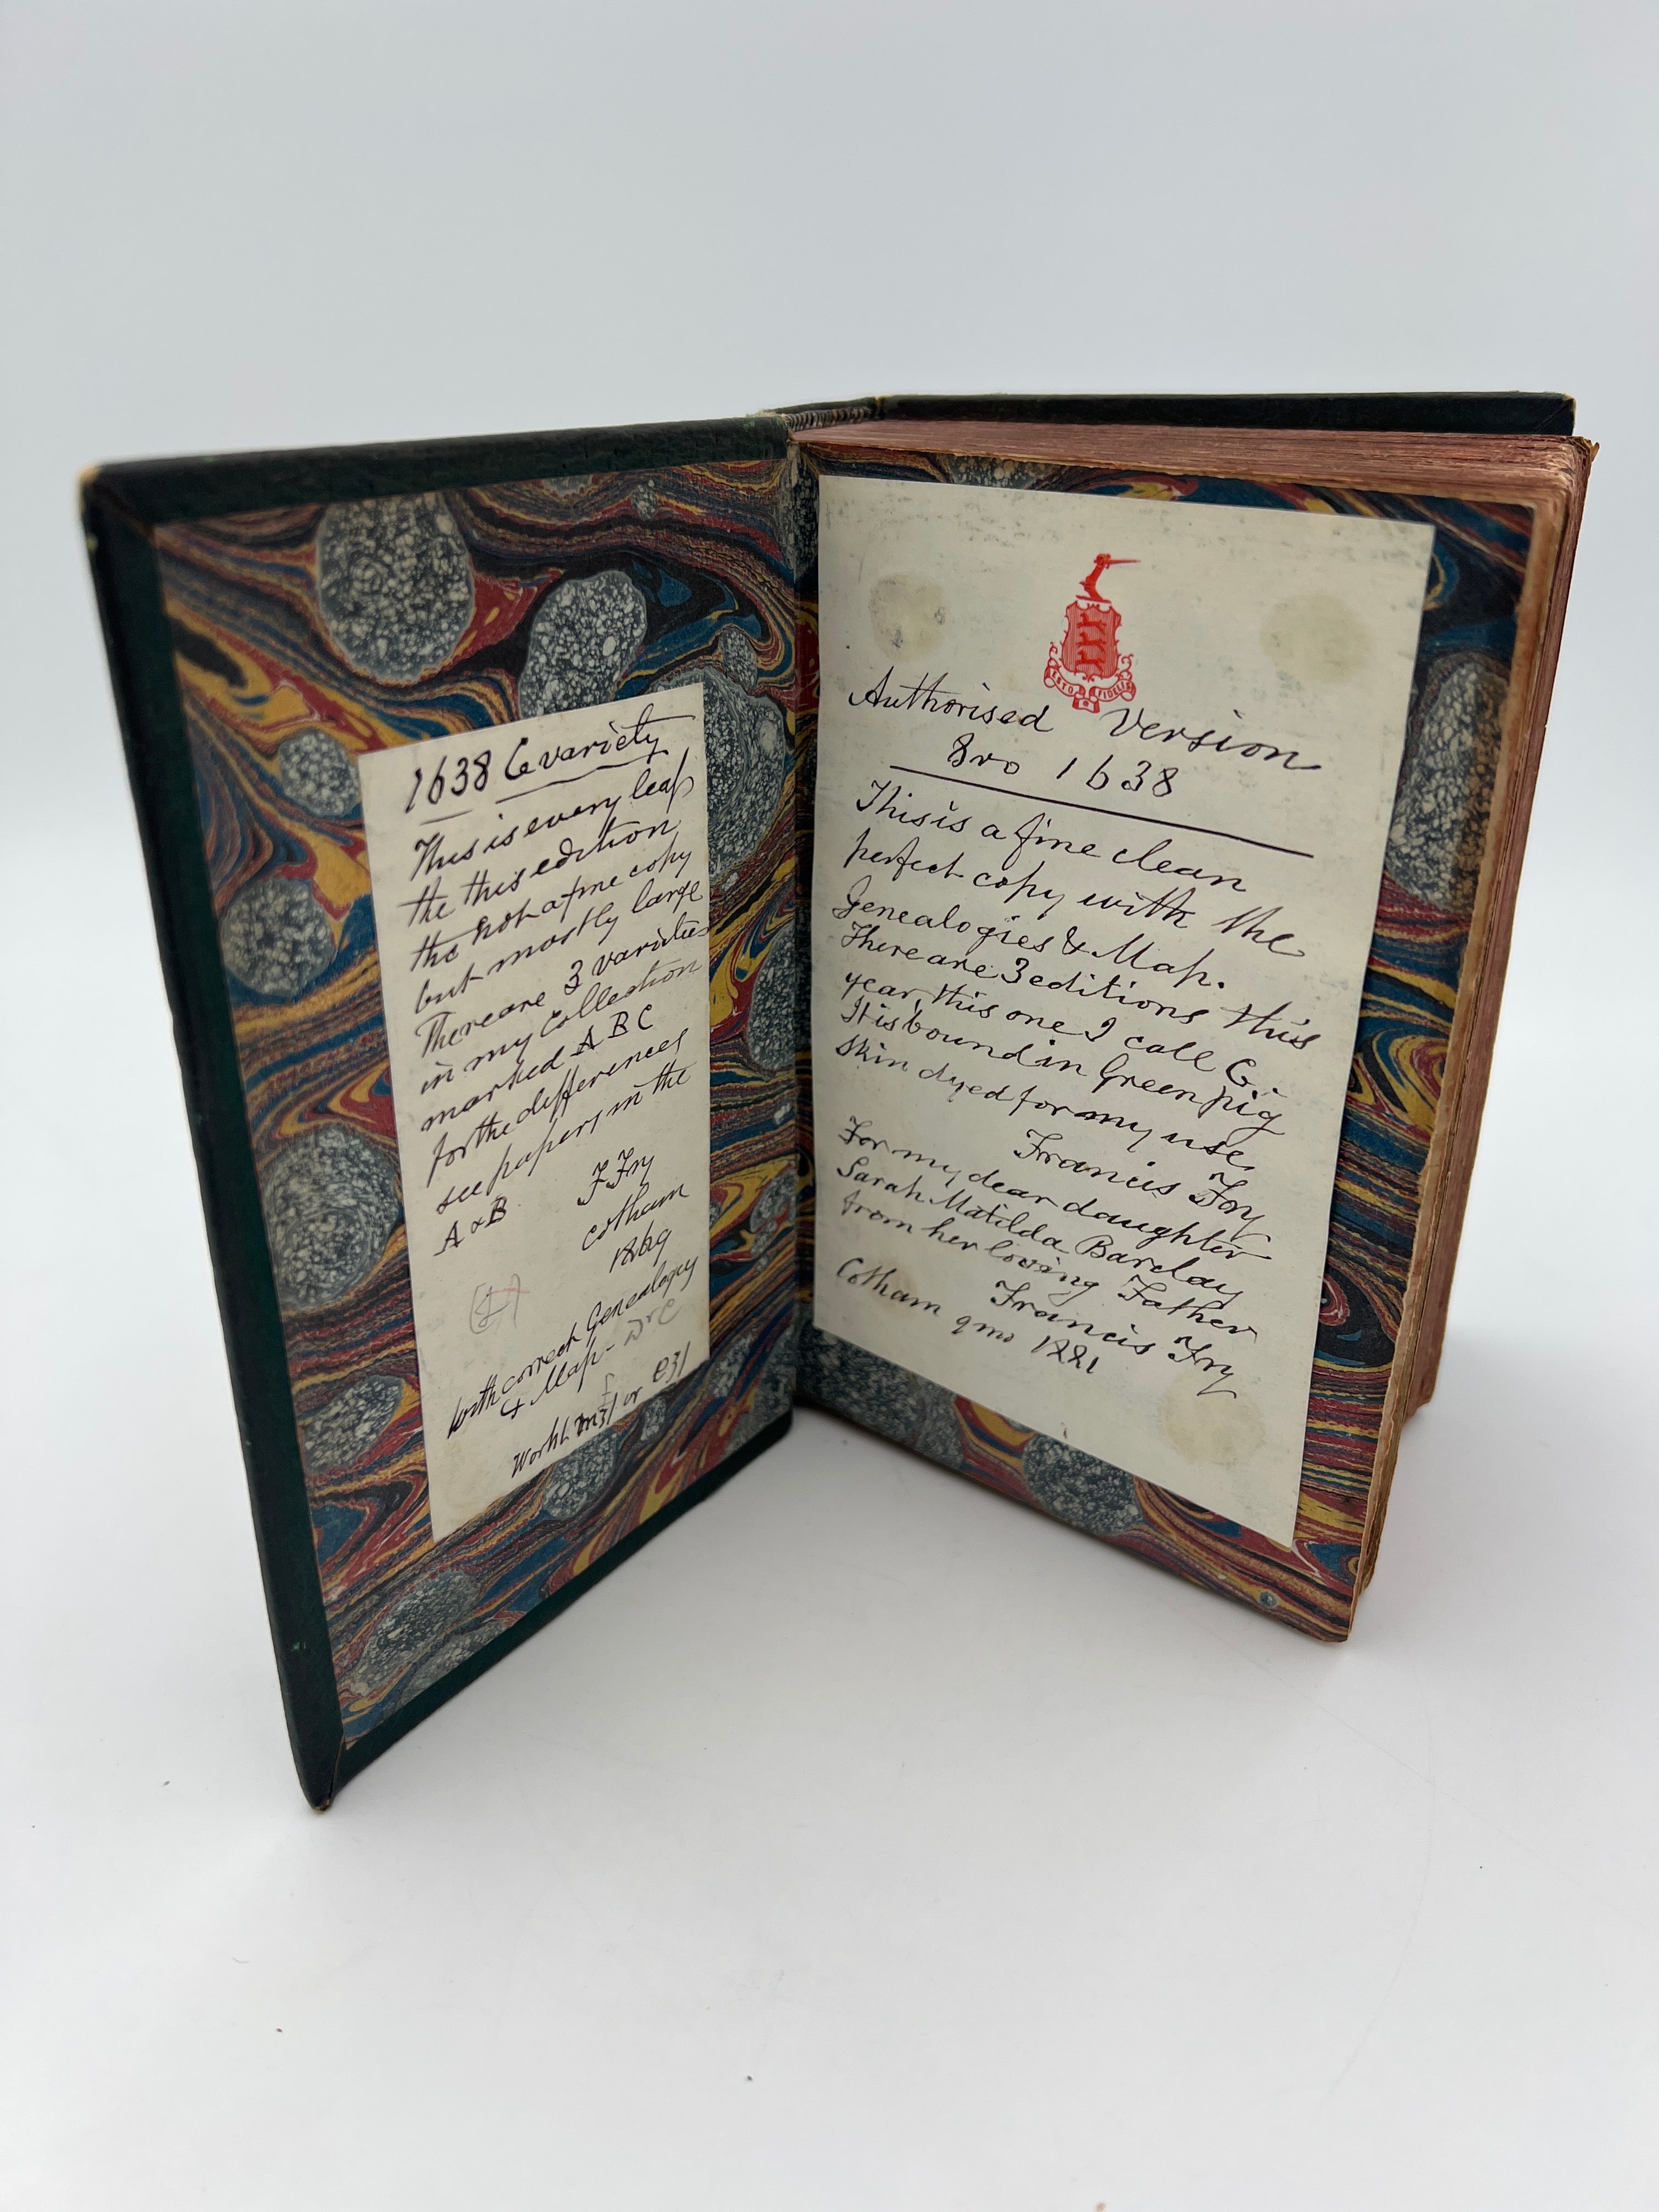 1638 C variety
This is every leaf
the this edition
the not a fine copy
but mostly large
There are 3 varieties
in my Collection
marked A B C
for the differences
see papers in the
A & B
F Fry
Cotham
1869
with correct Genealogy
& Map - Dr C
Worth £ m3/ or e3/
ESTO FIDELIS
Authorised Version
8vo 1638
This is a fine clean
perfect copy with the
Genealogies & Map.
There are 3 editions this
year, this one I call C.
It is bound in Green pig
skin dyed for my use.
Francis Fry
For my dear daughter
Sarah Matilda Barclay
from her loving Father
Francis Fry
Cotham 9mo 1881